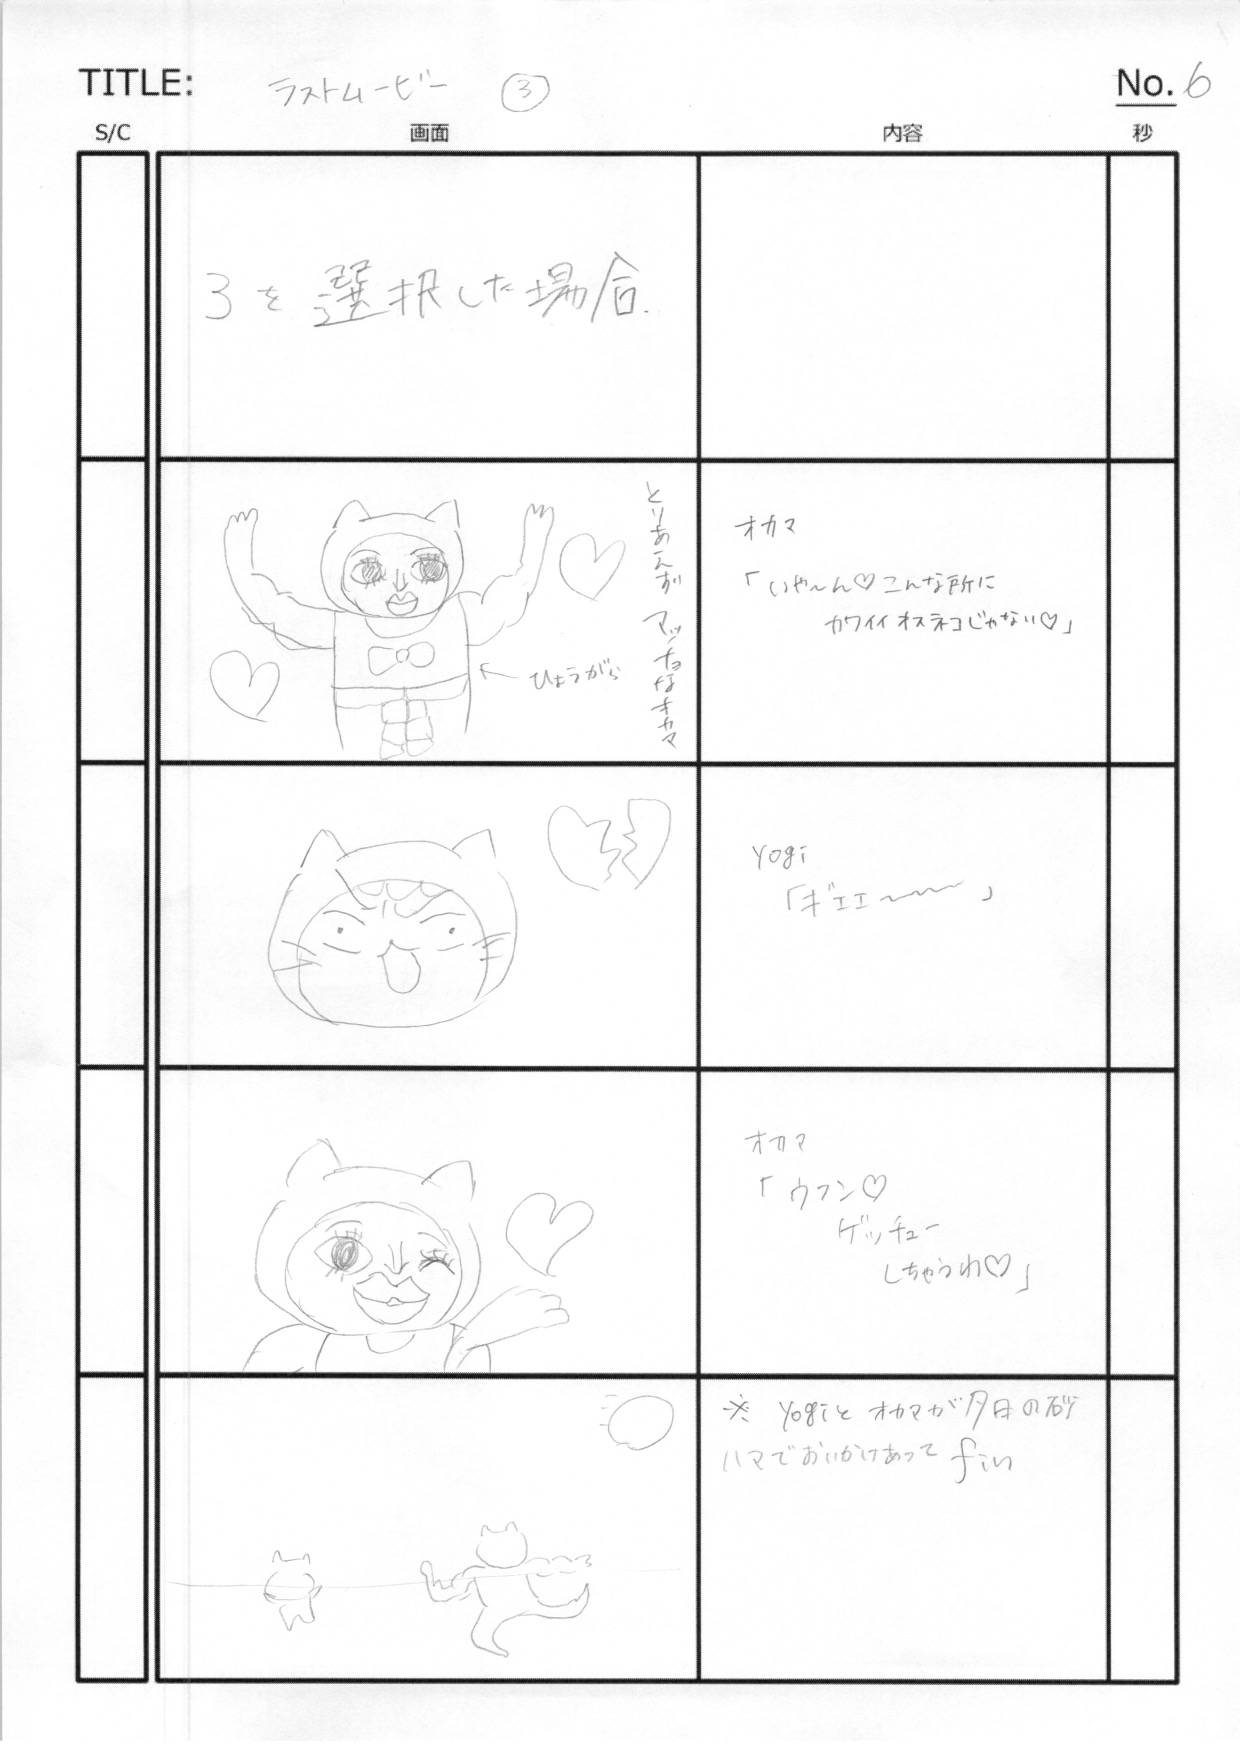 TITLE: ラストムービー ③
No. 6
S/C 画面 内容 秒
3を選択した場合.
とりあえず マッチョなオカマ
ひょうがら
オカマ
「いや〜ん♡こんな所に
カワイイオスネコじゃない♡」
yogi
「ギエエ〜〜〜」
オカマ
「ウフン♡
ゲッチュー
しちゃうわ♡」
※ yogiとオカマが夕日の砂
ハマでおいかけあって fin